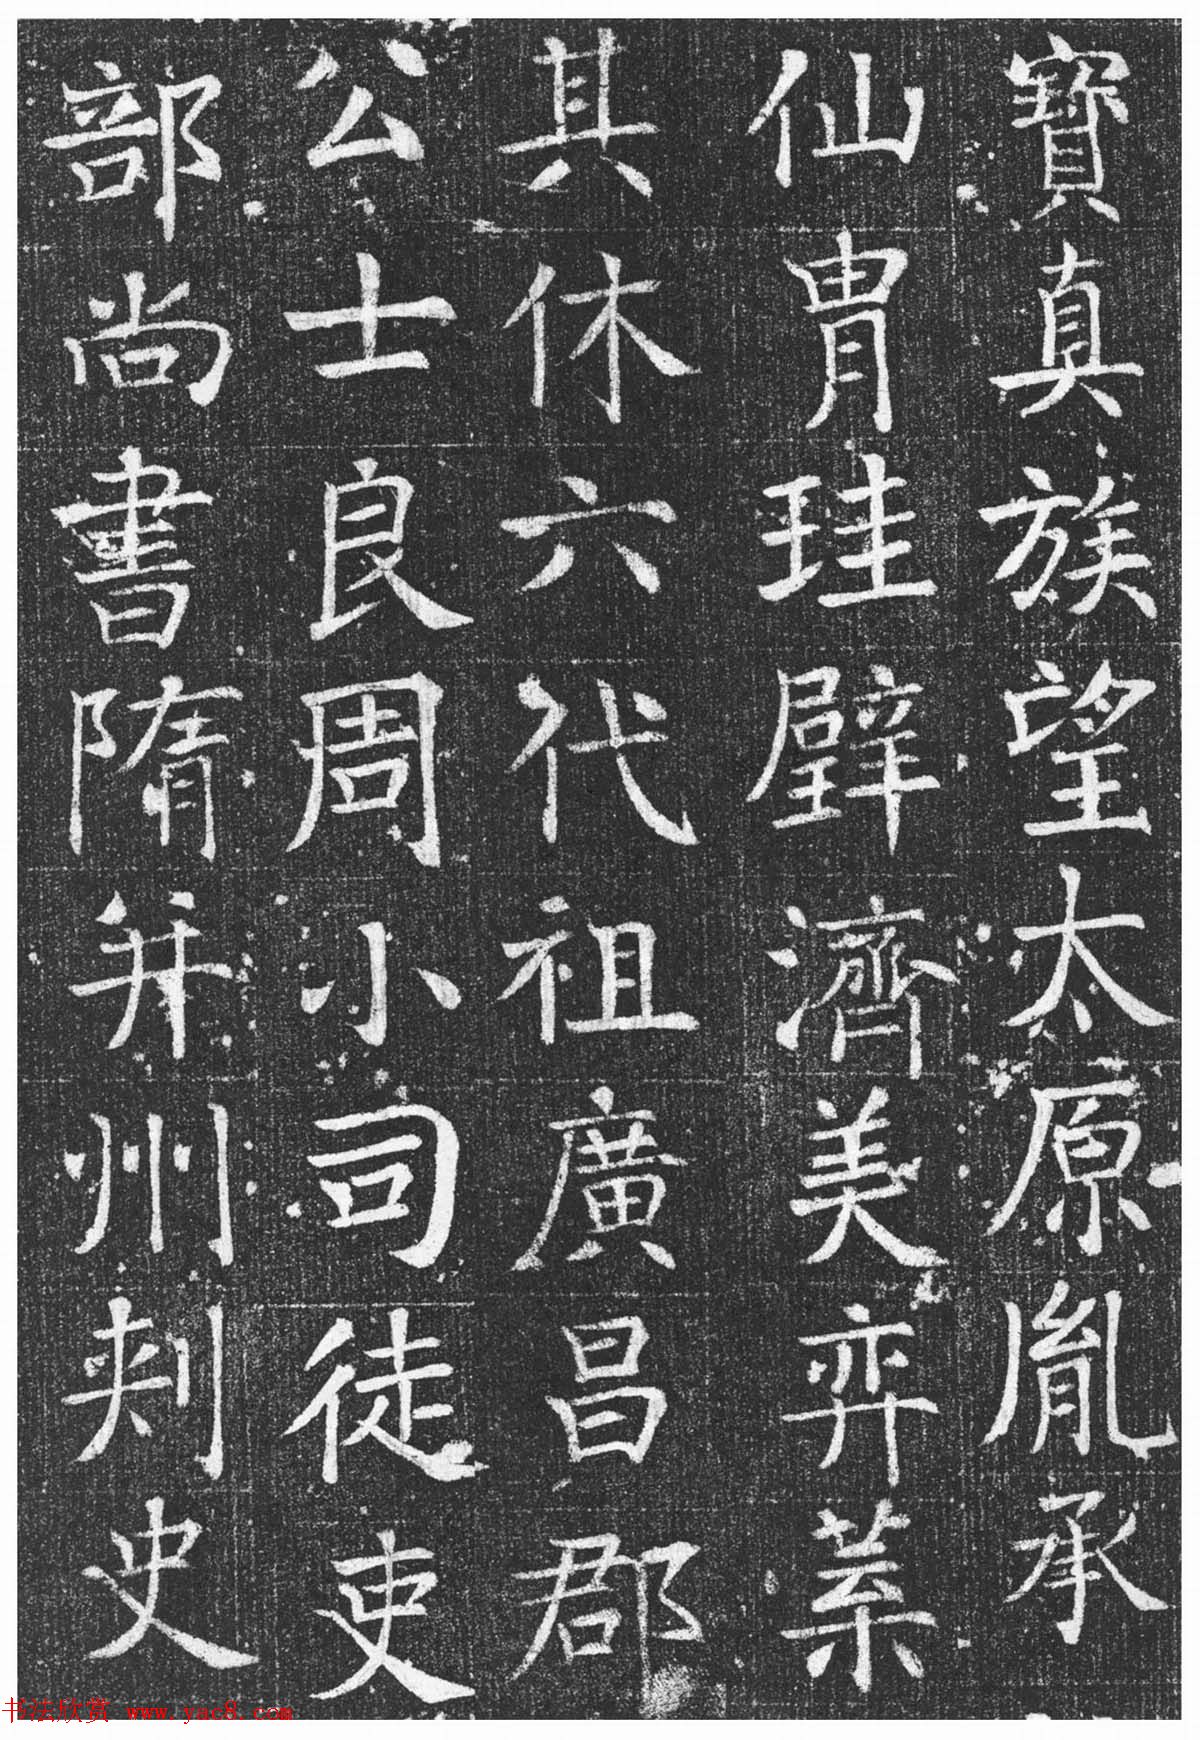 寶真族望太原胤承
仙胄珪璧濟美弈葉
其休六代祖廣昌郡
公士良周小司徒吏
部尚書隋并州刺史
书法欣赏 www.yac8.com